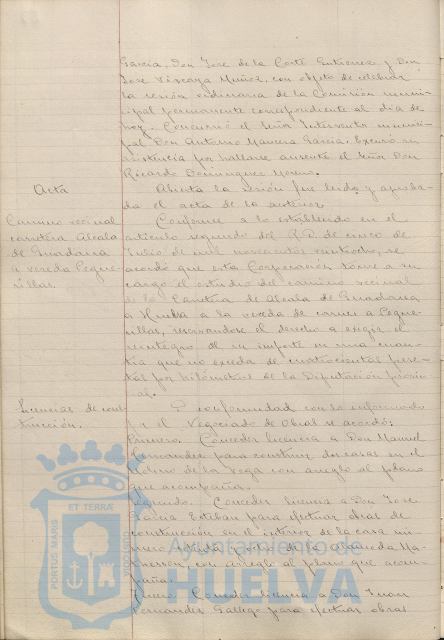 García, Don José de la Corte Gutierrez y Don
José Vizcaya Muñoz, con objeto de celebrar
la sesión ordinaria de la Comisión muni-
cipal permanente correspondiente al día de
hoy. Concurrió el Señor Interventor munici-
pal Don Antonio García. Excusó su
asistencia por hallarse ausente el Señor Don
Ricardo Dominguez
Acta
Abierta la sesión fue leida y aproba-
da el acta de la anterior.
Camino vecinal
carretera Alcalá
de Guadaira
a vereda Pegue-
rillas.
Conforme a lo establecido en el
artículo segundo del R.D. de cinco de
Julio de mil novecientos veintiocho, se
acordó que esta Corporación tome a su
cargo el estudio del camino vecinal
de la Carretera de Alcalá de Guadaira
a Huelva a la vereda de carnes a Pegue-
rillas, reservandose el derecho a exigir el
reintegro de su importe en una cuan-
tía que no exceda de cuatrocientas pese-
tas por kilómetros de la Diputación provin-
cial.
Licencias de cons-
trucción.
Y conformidad con lo informado
por el Negociado de Obras se acordó:
Primero. Conceder licencia a Don Manuel
Fernandez para construir dos casas en el
de la Vega con arreglo al plano
que acompaña.
Segundo. Conceder licencia a Don José
García Esteban para efectuar obras de
construcción en el interior de la casa nú-
mero de la Alameda
con arreglo al plano que acom-
paña.
Conceder licencia a Don Juan
Fernandez Gallego para efectuar obras
PORTUS MARIS ET TERRAE CUSTODIO
Ayuntamiento de
HUELVA